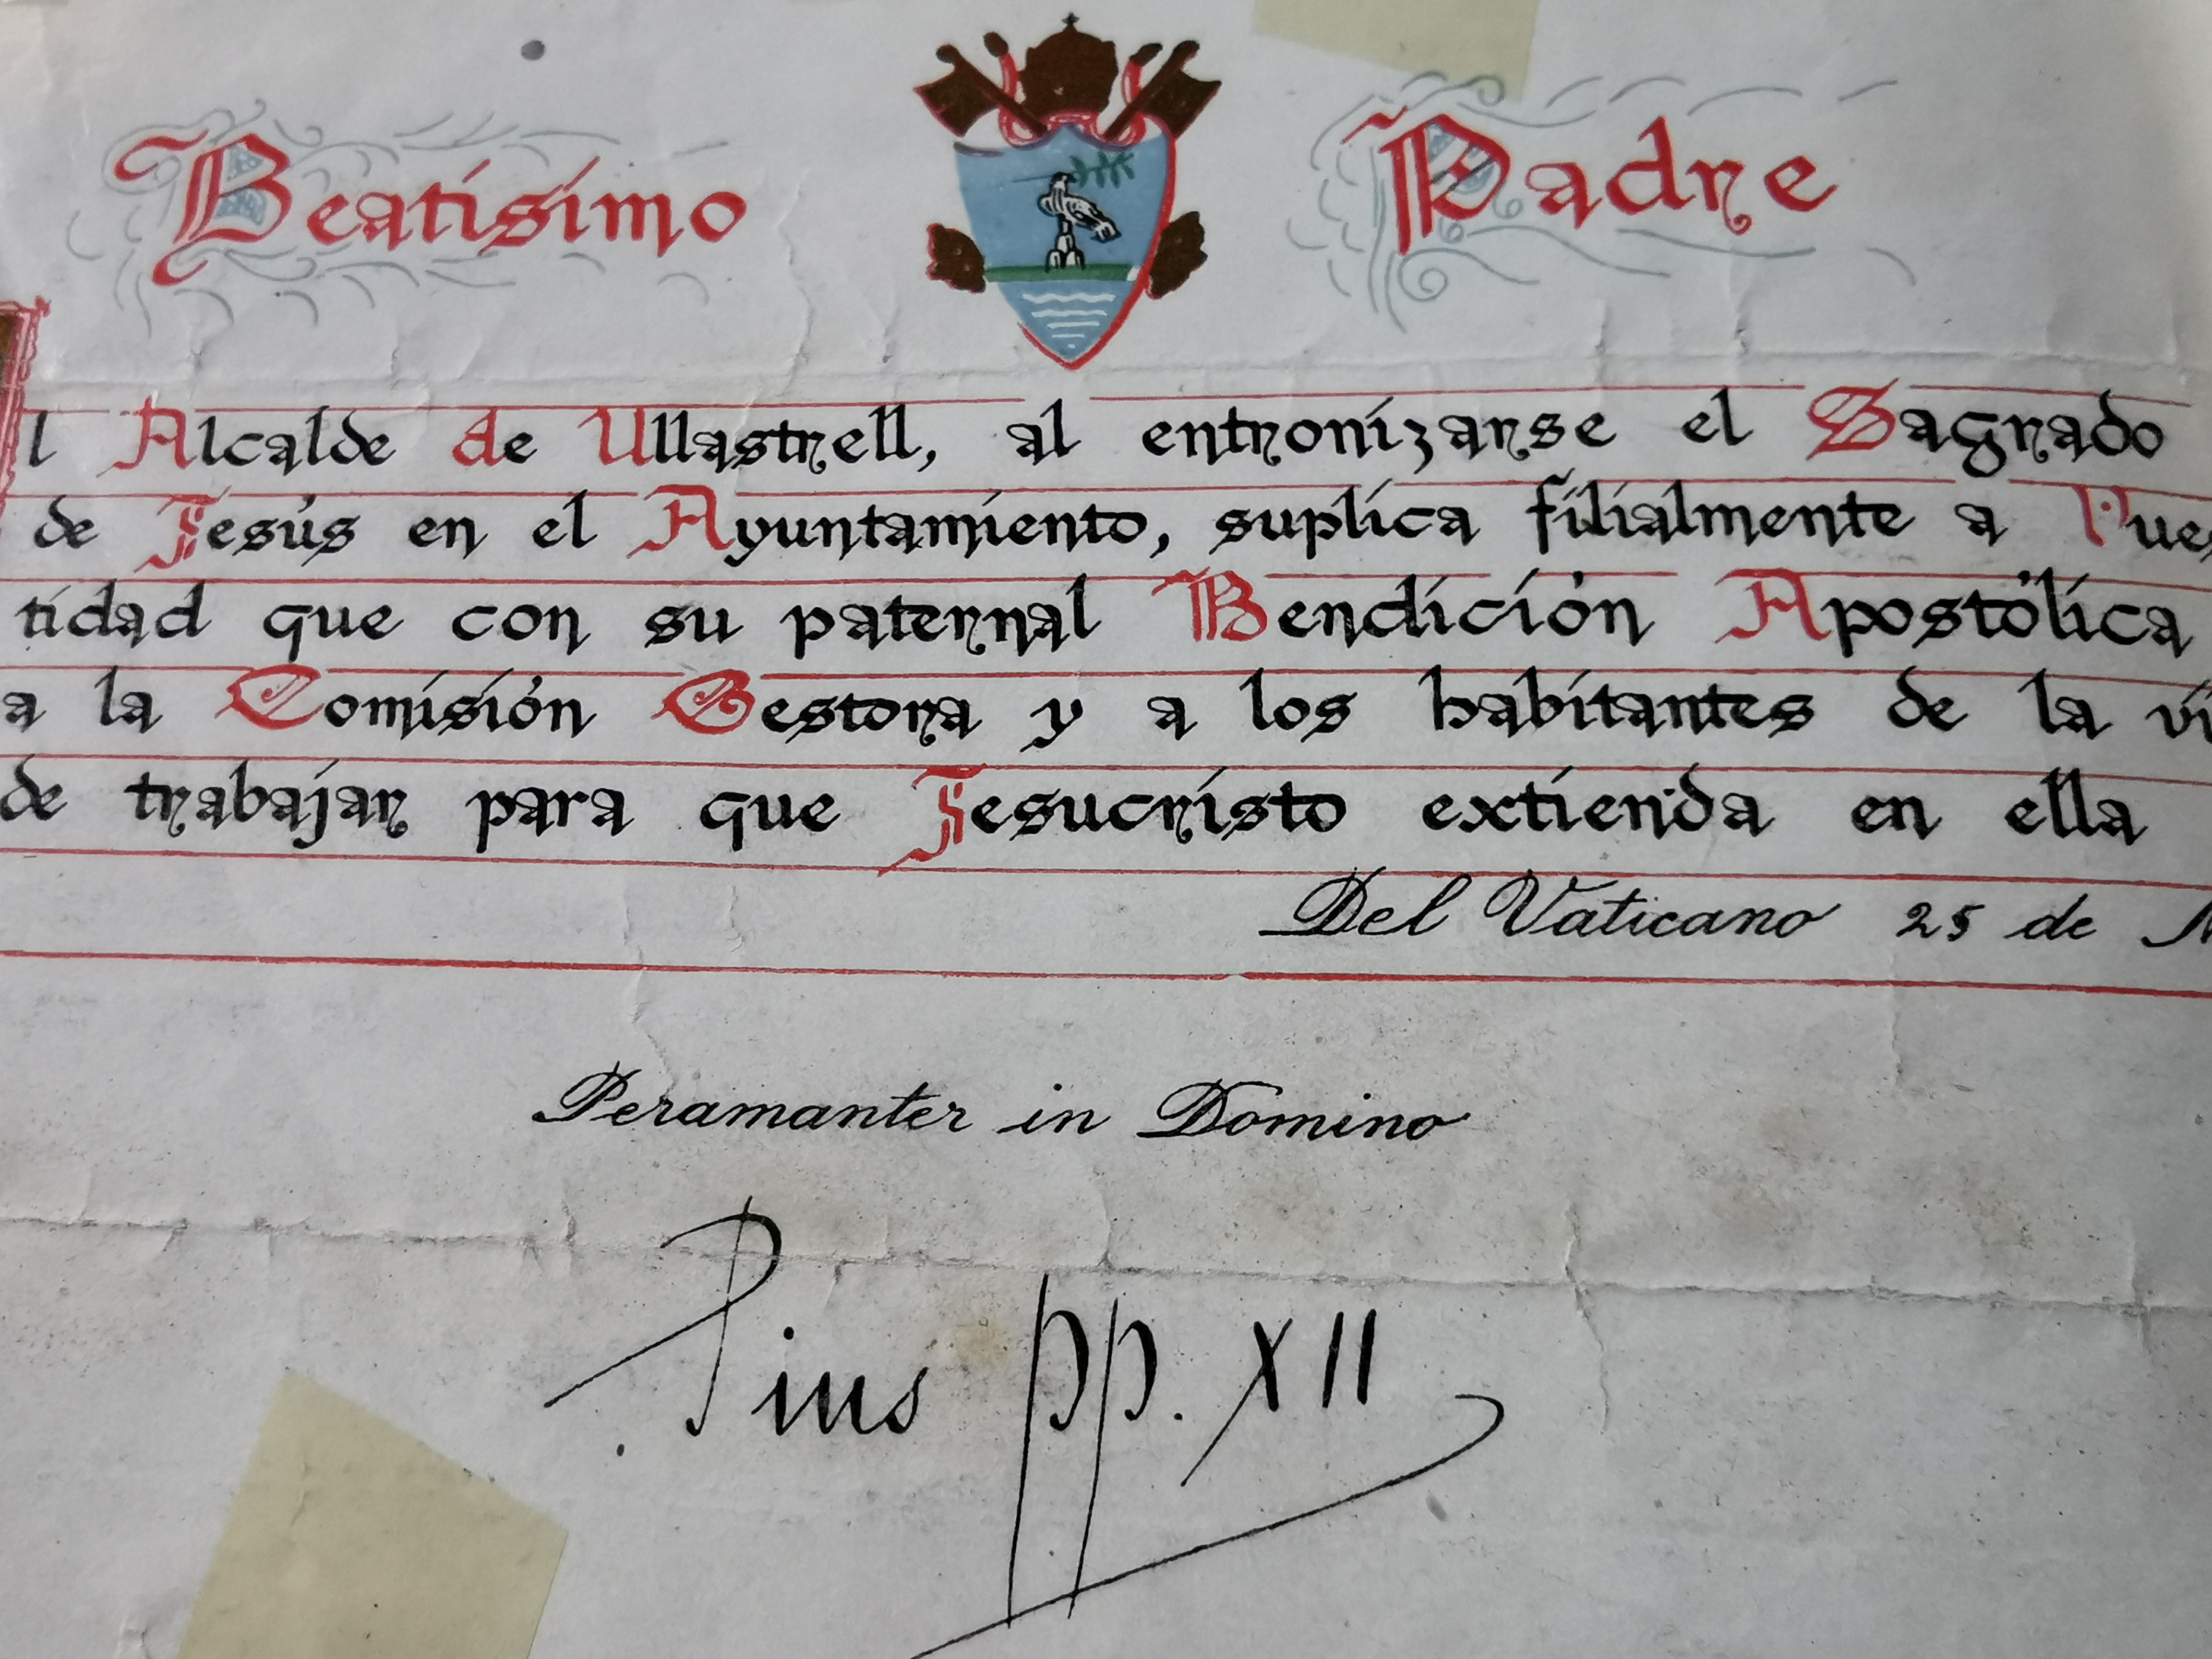 Beatísimo Padre
l Alcalde de Ullastrell, al entronizarse el Sagrado
de Jesús en el Ayuntamiento, suplica filialmente a Vues
tidad que con su paternal Bendición Apostólica
a la Comisión Gestora y a los habitantes de la vi
de trabajar para que Jesucristo extienda en ella
Del Vaticano 25 de M
Peramanter in Domino
Pius pp. XII